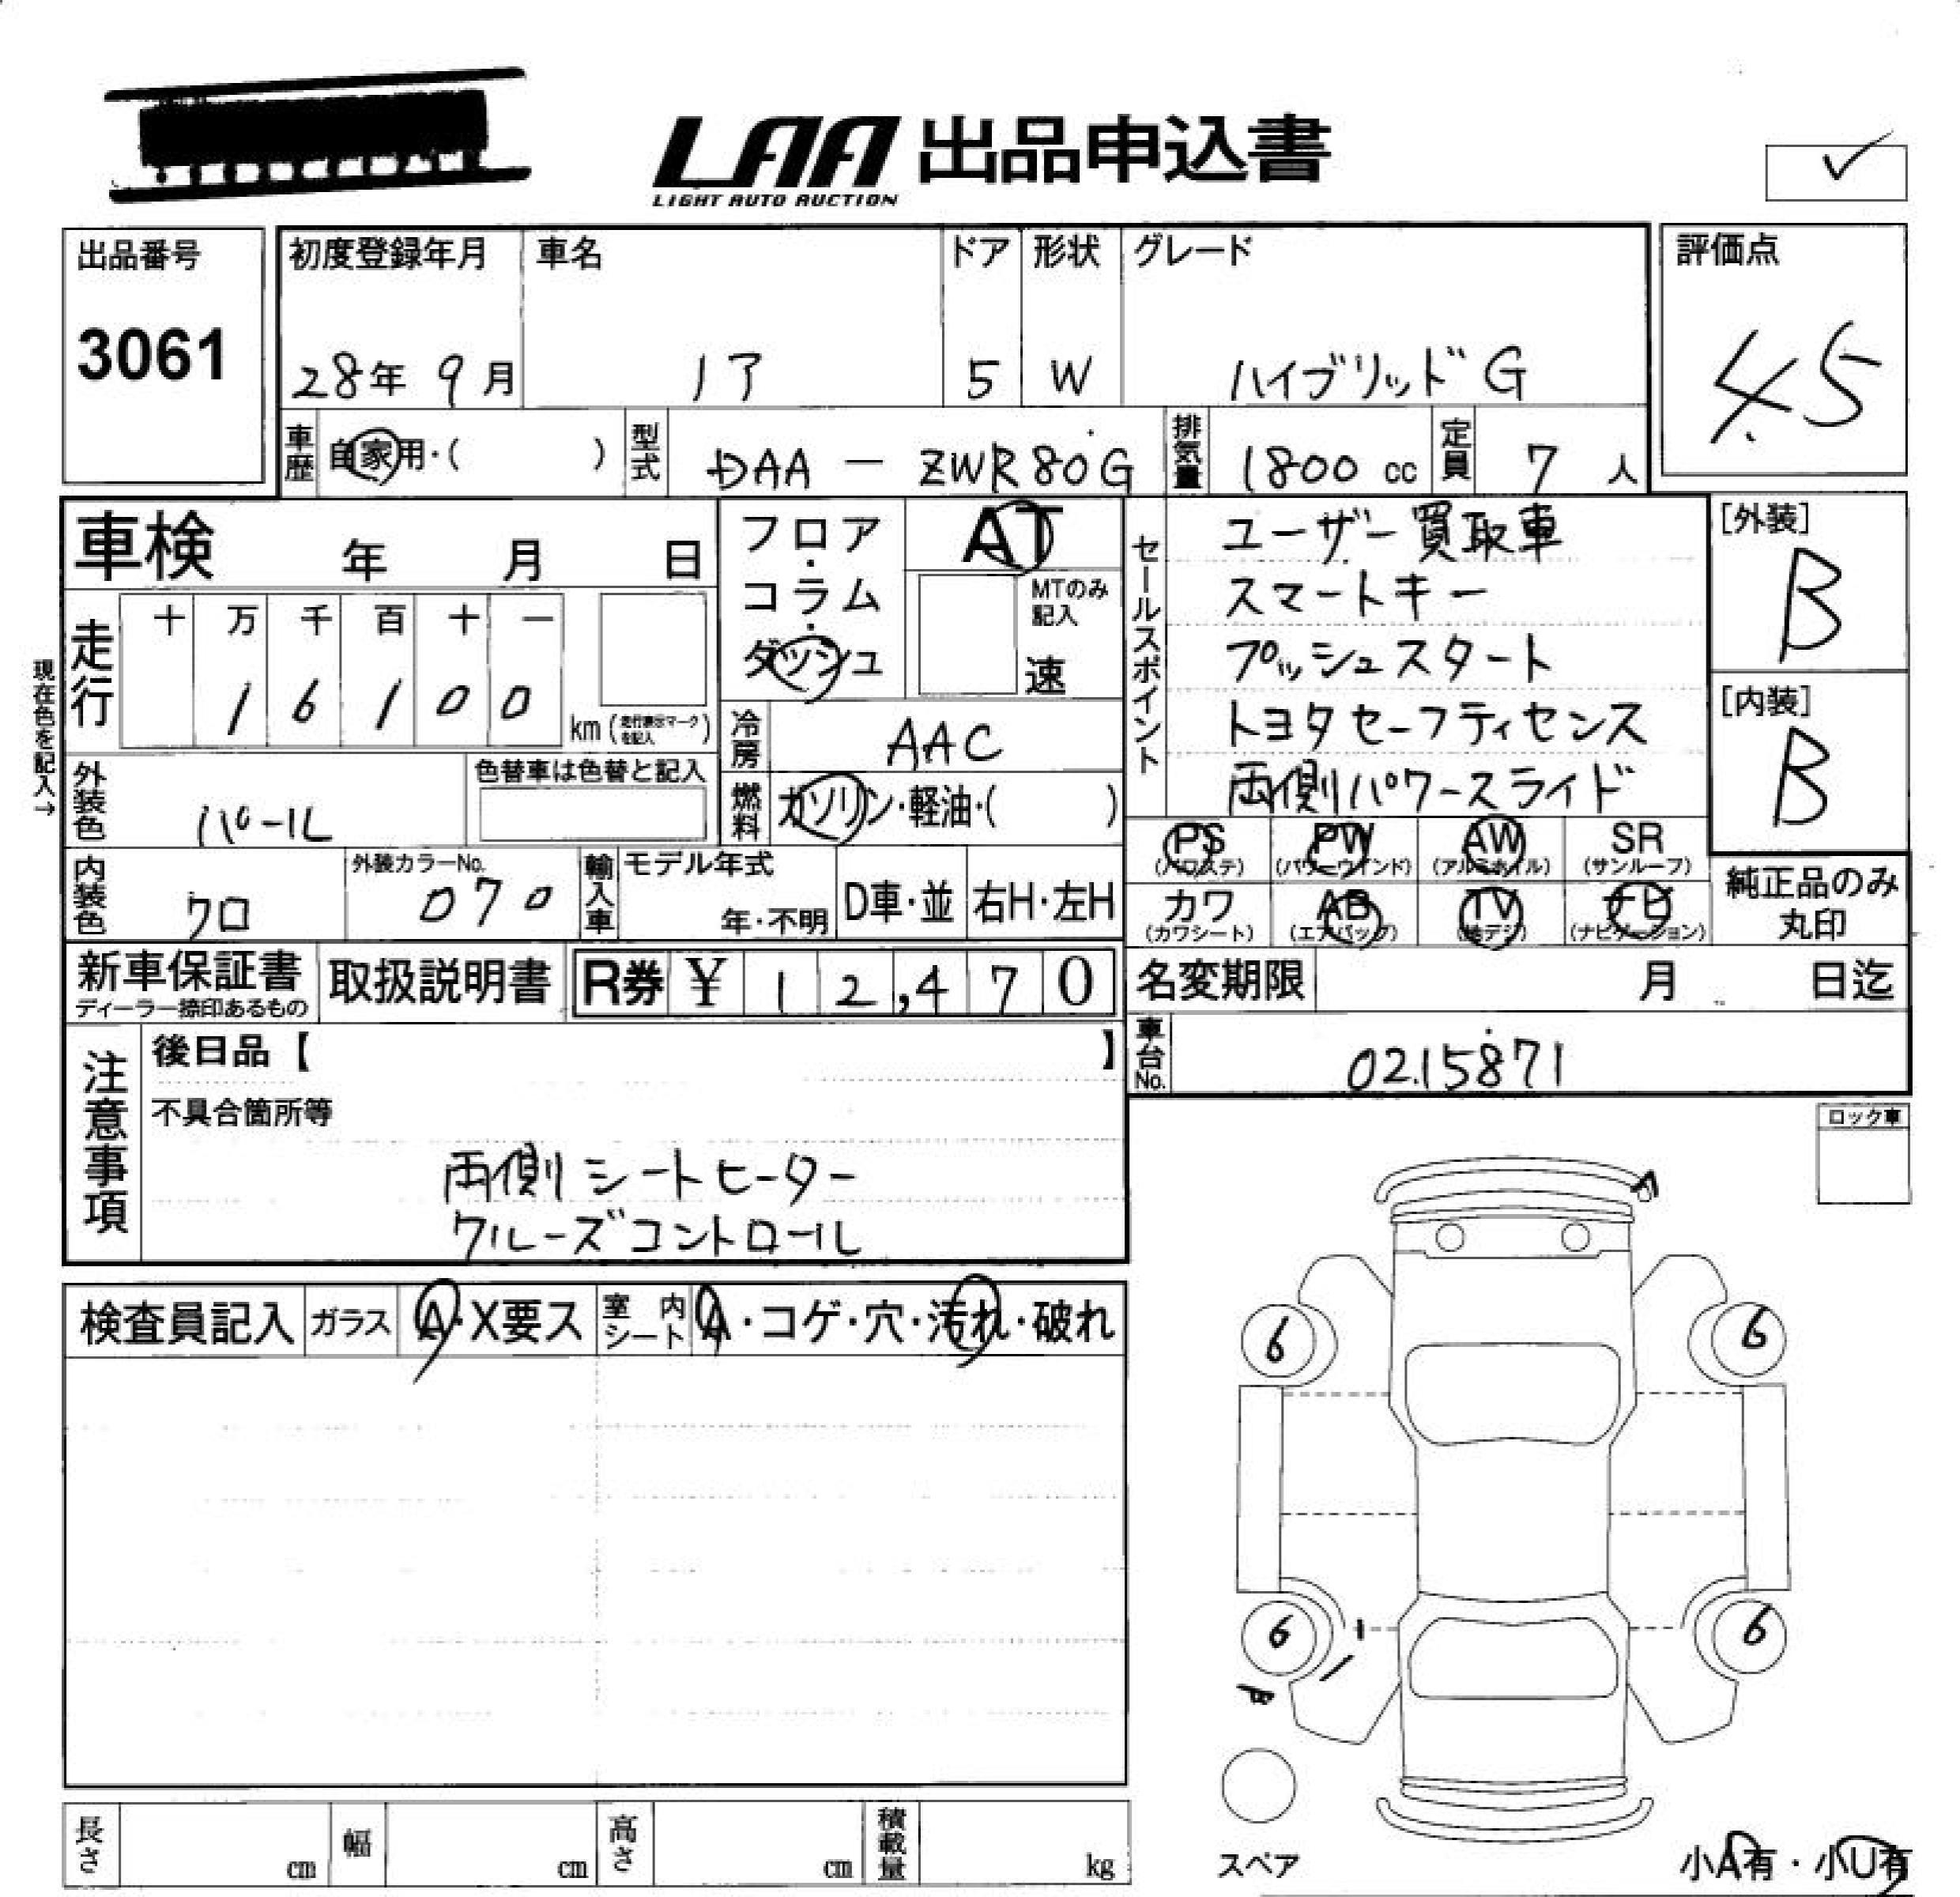 LAA 出品申込書
LIGHT AUTO AUCTION
出品番号
3061
初度登録年月
28年 9月
車名
ドア
5
形状
W
グレード
ハイブリッドG
評価点
4.5
車歴
自家用・( )
型式
DAA - ZWR80G
排気量
1800 cc
定員
7 人
車検 年 月 日
フロア・コラム・ダッシュ
AT
MTのみ記入
速
セールスポイント
ユーザー買取車
スマートキー
プッシュスタート
トヨタセーフティセンス
両側パワースライド
[外装]
B
[内装]
B
現在色を記入→
走行
十 万 千 百 十 一
1 6 1 0 0
km (走行表示マークを記入)
冷房
AAC
燃料
ガソリン・軽油・( )
外装色
パール
色替車は色替と記入
内装色
クロ
外装カラーNo.
070
輸入車
モデル年式
年・不明
D車・並
右H・左H
PS
(パワステ)
PW
(パワーウインド)
AW
(アルミホイル)
SR
(サンルーフ)
カワ
(カワシート)
AB
(エアバッグ)
TV
(地デジ)
ナビ
(ナビゲーション)
純正品のみ
丸印
新車保証書
ディーラー捺印あるもの
取扱説明書
R券 ¥ 12,470
名変期限 月 日迄
車台No.
0215871
注意事項
後日品【 】
不具合箇所等
両側シートヒーター
クルーズコントロール
ロック車
検査員記入
ガラス
A・X要ス
室内シート
A・コゲ・穴・汚れ・破れ
6
6
6
6
スペア
長さ cm
幅 cm
高さ cm
積載量 kg
小A有・小U有